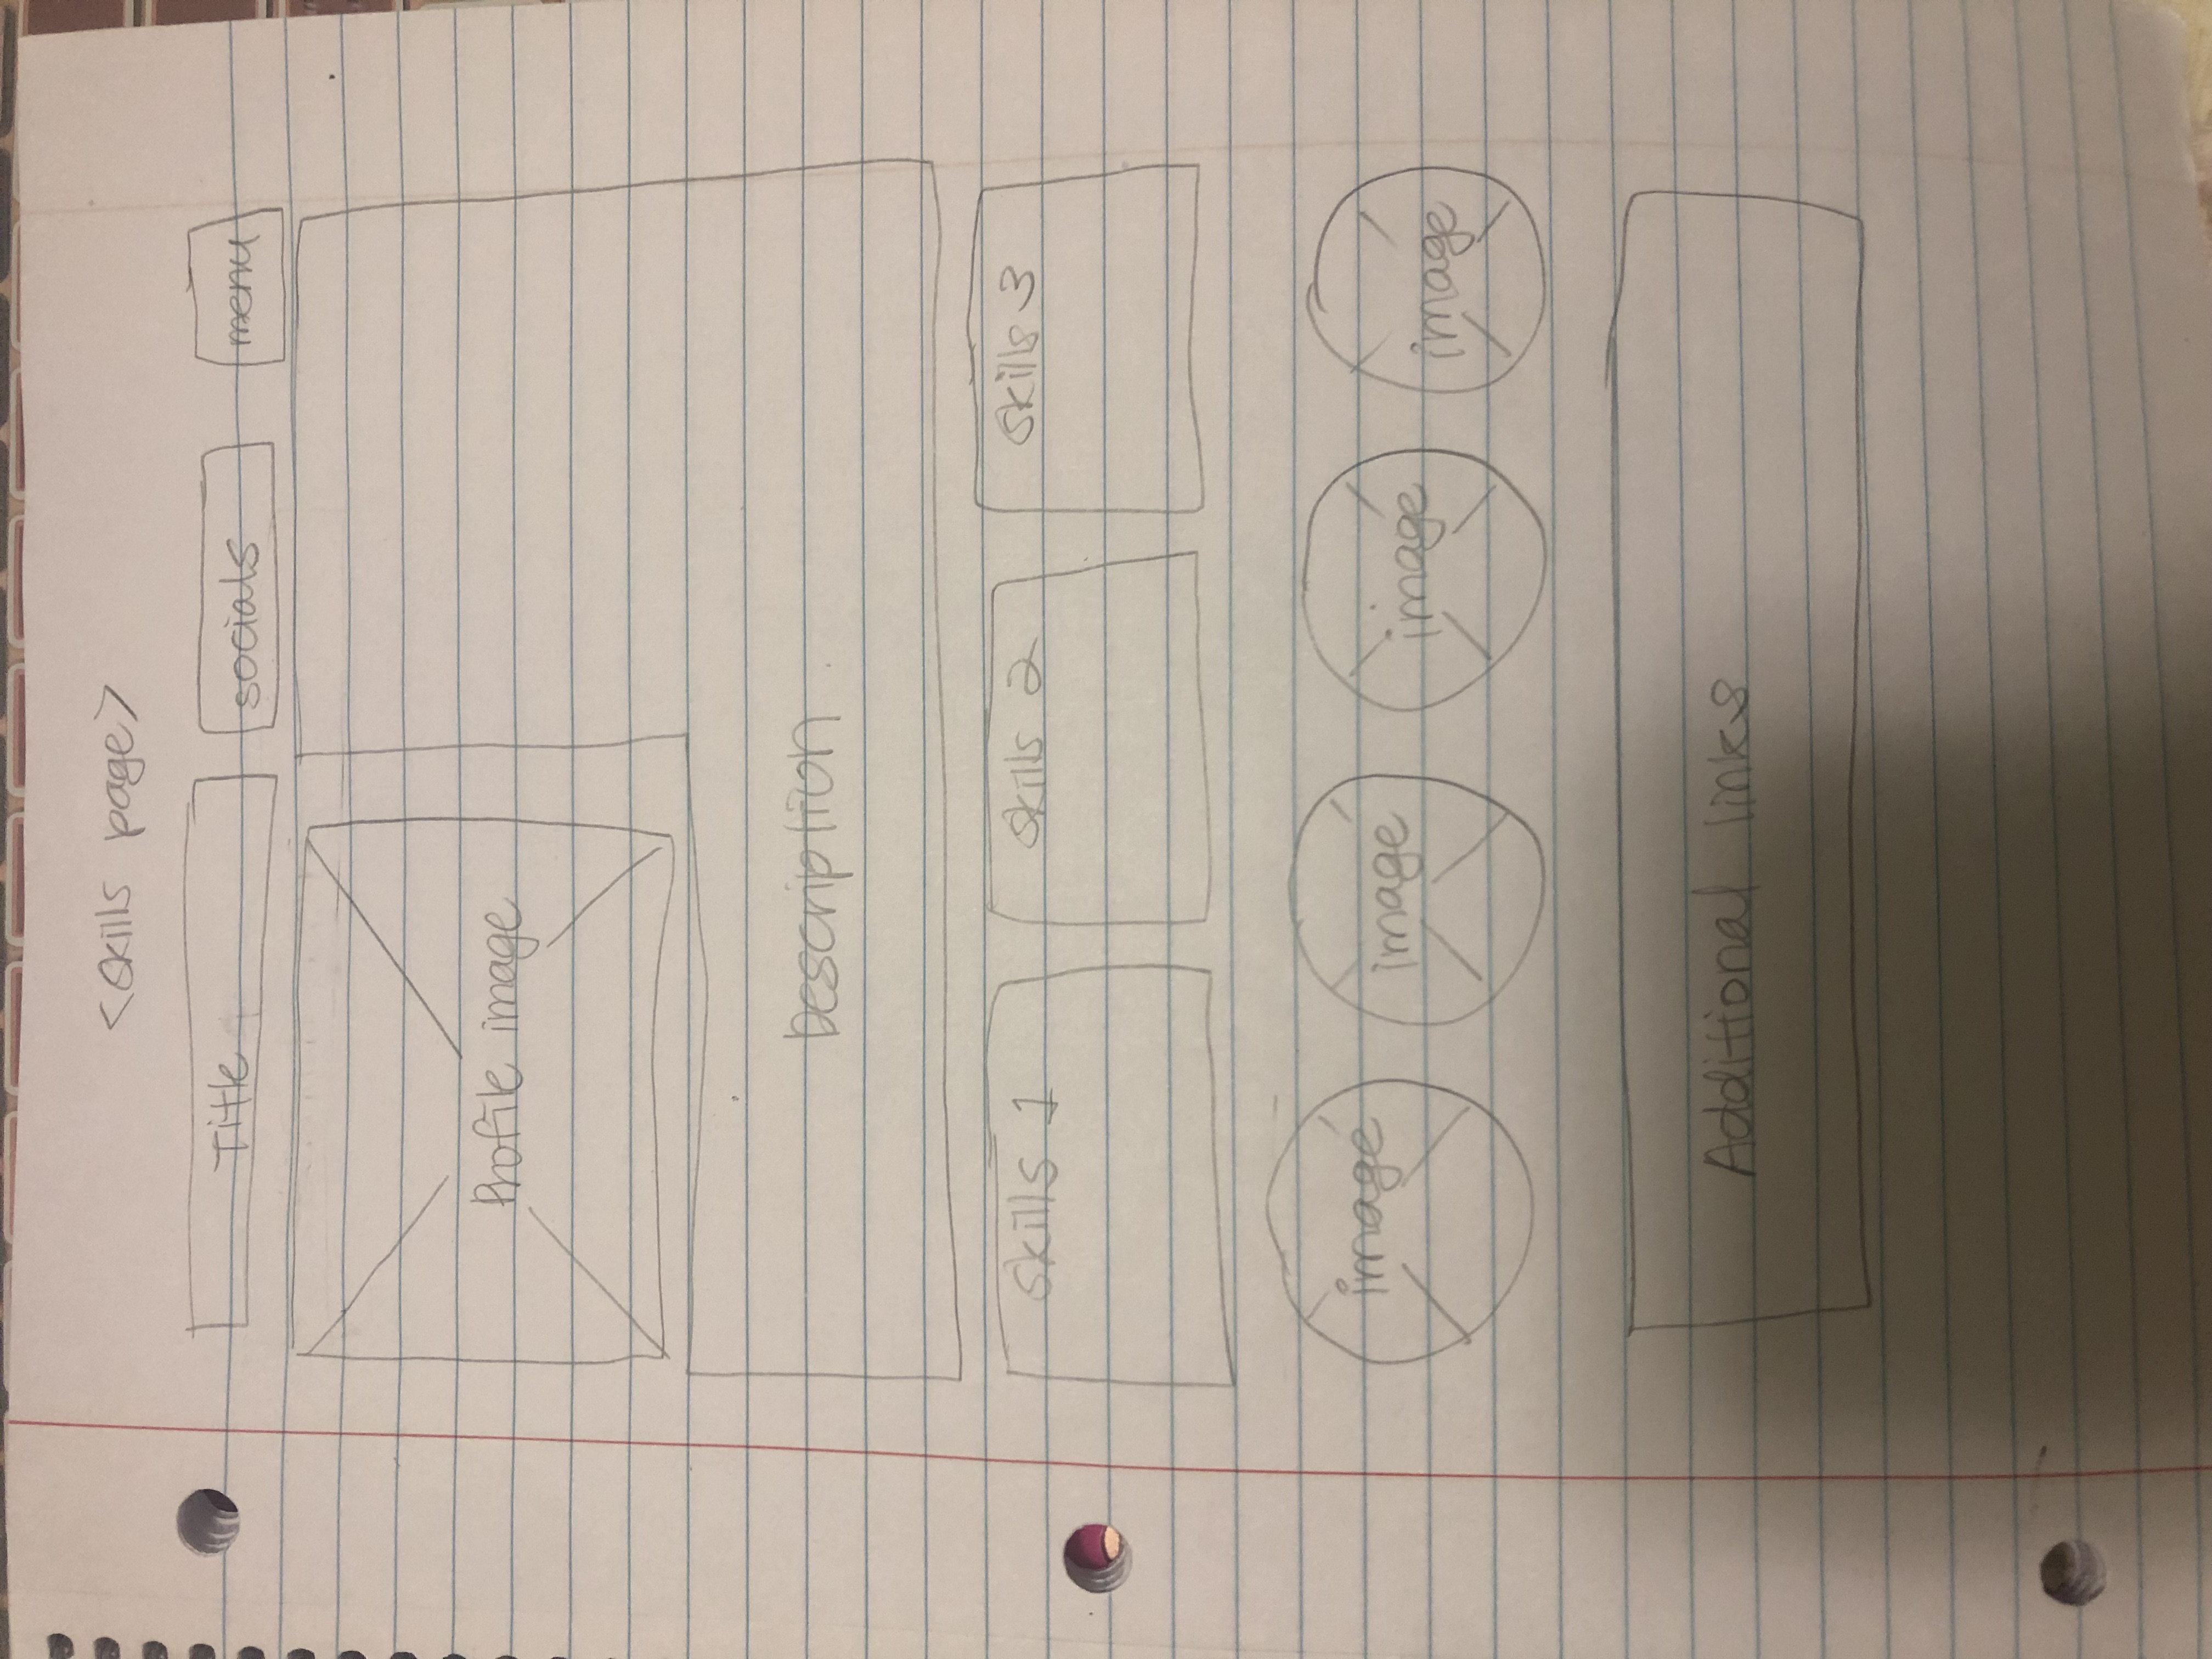 <skills page>
Title
socials
menu
Profile image
Description
skills 1
skills 2
skills 3
image
image
image
image
Additional links